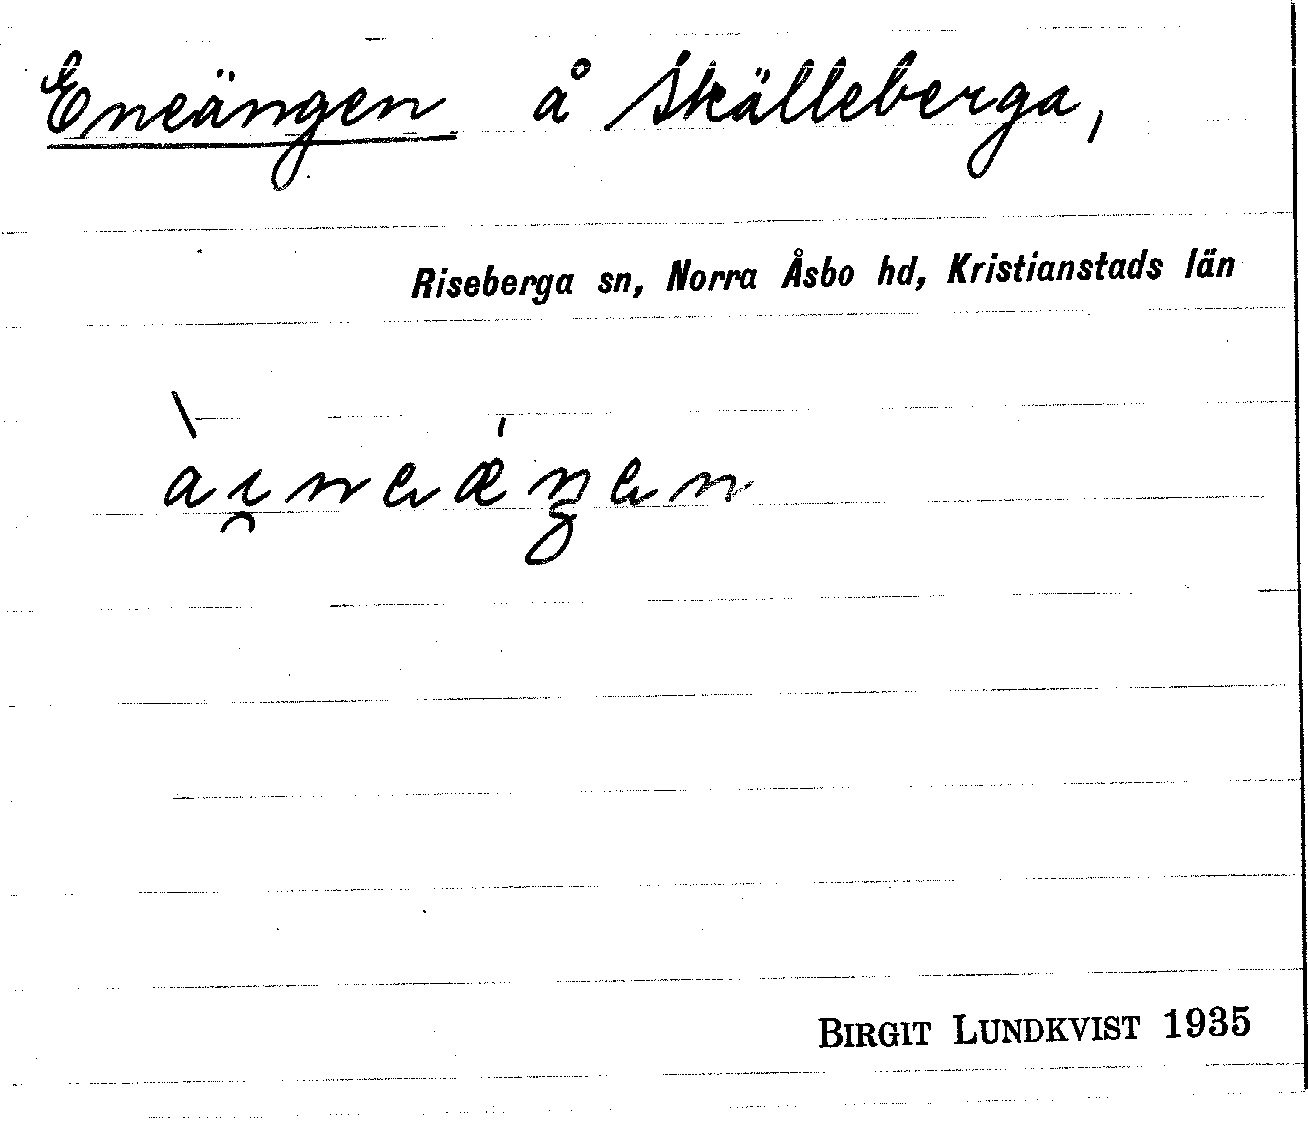 Eneängen å Skälleberga,
Riseberga sn, Norra Åsbo hd, Kristianstads län
BIRGIT LUNDKVIST 1935